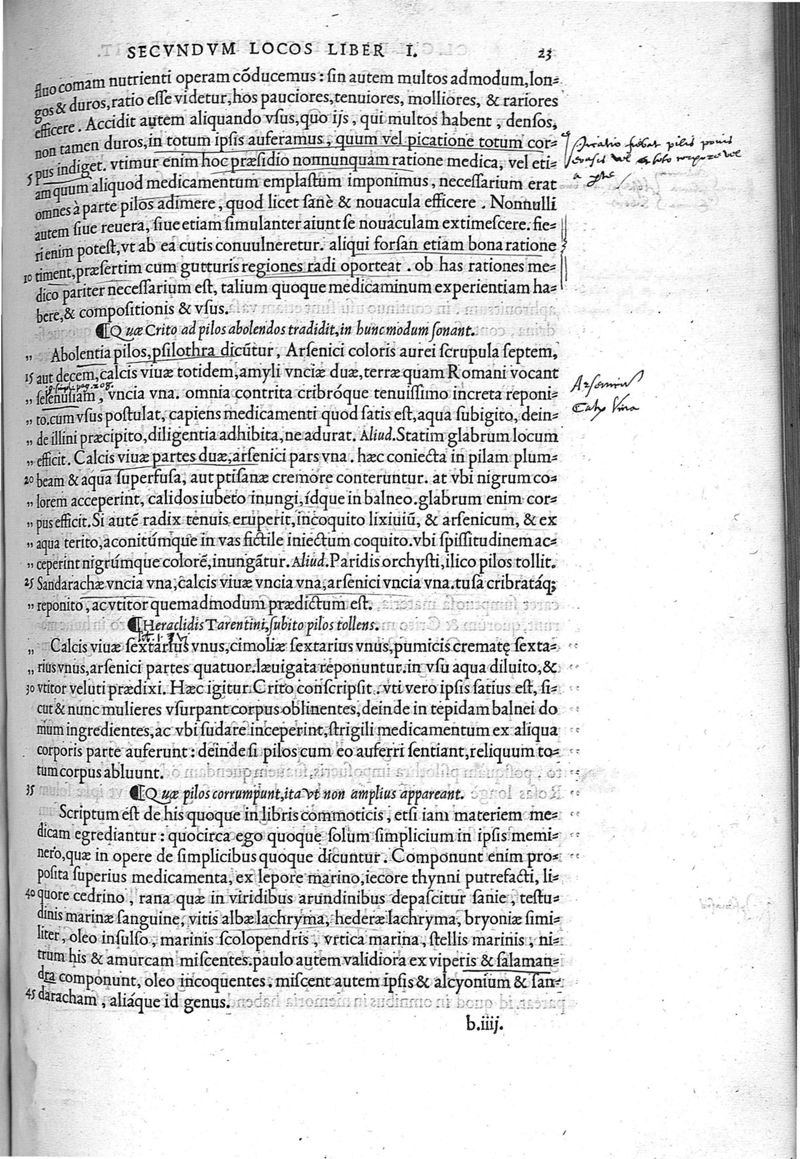 SECVNDVM LOCOS LIBER I. 23
fluo comam nutrienti operam cõducemus: ſin autem multos admodum, lon=
gos & duros, ratio eſſe videtur, hos pauciores, tenuiores, molliores, & rariores
efficere. Accidit autem aliquando vſus, quo ijs, qui multos habent, denſos,
non tamen duros, in totum ipſis auferamus, quum vel picatione totum cor=
5 pus indiget. vtimur enim hoc præſidio nonnunquam ratione medica, vel eti=
am quum aliquod medicamentum emplaſtum imponimus, neceſſarium erat
omnes à parte pilos adimere, quod licet ſanè & nouacula efficere. Nonnulli
autem ſiue reuera, ſiue etiam ſimulanter aiunt ſe nouaculam extimeſcere. fie=
ri enim poteſt, vt ab ea cutis conuulneretur. aliqui forſan etiam bona ratione
10 timent, præſertim cum gutturis regiones radi oporteat. ob has rationes me=
dico pariter neceſſarium eſt, talium quoque medicaminum experientiam ha=
bere, & compoſitionis & vſus.
¶Quæ Crito ad pilos abolendos tradidit, in hunc modum ſonant.
„ Abolentia pilos, pſilothra dicũtur, Arſenici coloris aurei ſcrupula ſeptem,
15 aut decem, calcis viuæ totidem, amyli vnciæ duæ, terræ quam Romani vocant
„ ſelenuſiam, vncia vna. omnia contrita cribróque tenuiſſimo increta reponi=
„ to. cum vſus poſtulat, capiens medicamenti quod ſatis eſt, aqua ſubigito, dein=
„ de illini præcipito, diligentia adhibita, ne adurat. Aliud. Statim glabrum locum
„ efficit. Calcis viuæ partes duæ, arſenici pars vna. hæc coniecta in pilam plum=
20 beam & aqua ſuperfuſa, aut ptiſanæ cremore conteruntur. at vbi nigrum co=
„ lorem acceperint, calidos iubeto inungi, idque in balneo. glabrum enim cor=
„ pus efficit. Si autẽ radix tenuis eruperit, incoquito lixiuiũ, & arſenicum, & ex
„ aqua terito, aconitúmque in vas fictile iniectum coquito. vbi ſpiſſitudinem ac=
„ ceperint nigrúmque colorẽ, inungãtur. Aliud. Paridis orchyſti, ilico pilos tollit.
25 Sandarachæ vncia vna, calcis viuæ vncia vna, arſenici vncia vna. tuſa cribratáq;
„ reponito, ac vtitor quemadmodum prædictum eſt.
¶Heraclidis Tarentini, ſubito pilos tollens.
„ Calcis viuæ ſextarius vnus, cimoliæ ſextarius vnus, pumicis crematę ſexta=
„ rius vnus, arſenici partes quatuor. læuigata reponuntur. in vſu aqua diluito, &
30 vtitor veluti prædixi. Hæc igitur Crito conſcripſit. vti vero ipſis ſatius eſt, ſi=
cut & nunc mulieres vſurpant corpus oblinentes, deinde in tepidam balnei do
mum ingredientes, ac vbi ſudare inceperint, ſtrigili medicamentum ex aliqua
corporis parte auferunt: deinde ſi pilos cum eo auferri ſentiant, reliquum to=
tum corpus abluunt.
35 ¶Quæ pilos corrumpunt, ita vt non amplius appareant.
Scriptum eſt de his quoque in libris commoticis, etſi iam materiem me=
dicam egrediantur: quocirca ego quoque ſolum ſimplicium in ipſis memi=
nero, quæ in opere de ſimplicibus quoque dicuntur. Componunt enim pro=
poſita ſuperius medicamenta, ex lepore marino, iecore thynni putrefacti, li=
40 quore cedrino, rana quæ in viridibus arundinibus depaſcitur ſanie, teſtu=
dinis marinæ ſanguine, vitis albæ lachryma, hederæ lachryma, bryoniæ ſimi=
liter, oleo inſulſo, marinis ſcolopendris, vrtica marina, ſtellis marinis, ni=
trum his & amurcam miſcentes. paulo autem validiora ex viperis & ſalaman=
dra componunt, oleo incoquentes. miſcent autem ipſis & alcyonium & ſan=
45 daracham, aliáque id genus.
b.iiij.
Calx Viua